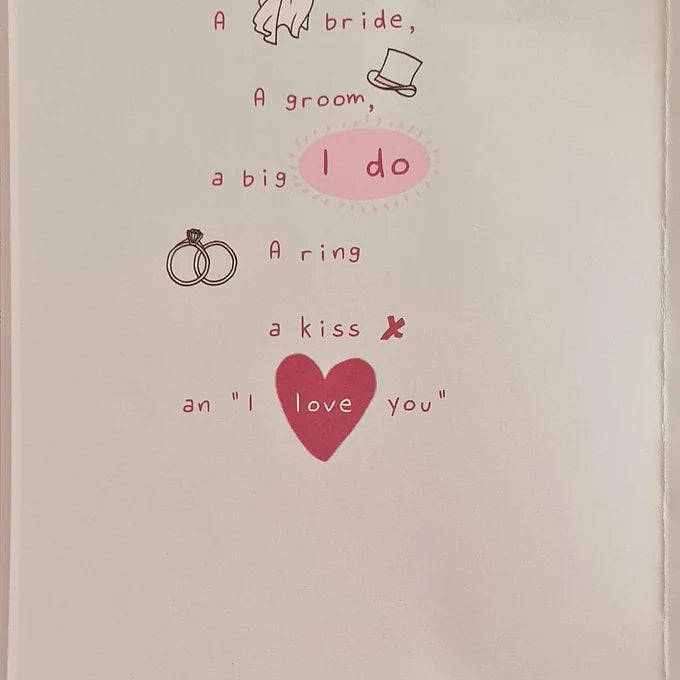 A bride,
A groom,
a big I do
A ring
a kiss x
an "I love you"